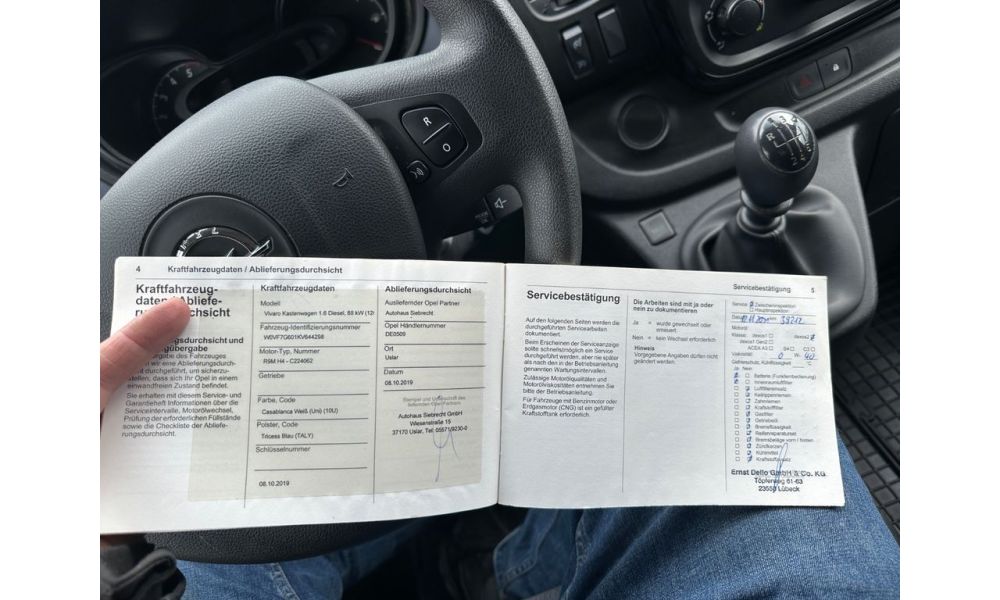 R
O
4 Kraftfahrzeugdaten / Ablieferungsdurchsicht
Kraftfahrzeug-
daten / Abliefe-
rungsdurchsicht
ngsdurchsicht und
gübergabe
ergabe des Fahrzeuges
wir eine Ablieferungsdurch-
durchgeführt, um sicherzu-
stellen, dass sich Ihr Opel in einem
einwandfreien Zustand befindet.
Sie erhalten mit diesem Service- und
Garantieheft Informationen über die
Serviceintervalle, Motorölwechsel,
Prüfung der erforderlichen Füllstände
sowie die Checkliste der Abliefe-
rungsdurchsicht.
Kraftfahrzeugdaten
Modell
Vivaro Kastenwagen 1.6 Diesel, 88 kW (12
Fahrzeug-Identifizierungsnummer
Motor-Typ, Nummer
R9M H4 - C224062
Getriebe
Farbe, Code
Casablanca Weiß (Uni) (10U)
Polster, Code
Tricess Blau (TALY)
Schlüsselnummer
08.10.2019
Ablieferungsdurchsicht
Ausliefernder Opel Partner
Autohaus Siebrecht
Opel Händlernummer
DE0509
Ort
Uslar
Datum
08.10.2019
Stempel und Unterschrift des
liefernden Opel Partners
Autohaus Siebrecht GmbH
Wiesenstraße 15
37170 Uslar, Tel: 05571/9230-0
Servicebestätigung 5
Servicebestätigung
Auf den folgenden Seiten werden die
durchgeführten Servicearbeiten
dokumentiert.
Beim Erscheinen der Serviceanzeige
sollte schnellstmöglich ein Service
durchgeführt werden, aber nie später
als nach den in der Betriebsanleitung
genannten Wartungsintervallen.
Zulässige Motorölqualitäten und
Motorölviskositäten entnehmen Sie
bitte der Betriebsanleitung.
Für Fahrzeuge mit Benzinmotor oder
Erdgasmotor (CNG) ist ein gefüllter
Kraftstofftank erforderlich.
Die Arbeiten sind mit ja oder
nein zu dokumentieren
Ja = wurde gewechselt oder
erneuert
Nein = kein Wechsel erforderlich
Hinweis
Vorgegebene Angaben dürfen nicht
geändert werden.
Service: Zwischeninspektion
Hauptinspektion
Datum
Motoröl:
Klasse: dexos1 dexos2
dexos1 Gen2
ACEA A3 B4 C3
Viskosität: 0 W- 40
Gefrierschutz, Kühlflüssigkeit °C
Ja Nein
Batterie (Funktionsbedienung)
Innenraumluftfilter
Luftfiltereinsatz
Keilrippenriemen
Zahnriemen
Kraftstofffilter
Gasfilter
Getriebeöl
Bremsflüssigkeit
Reifenreparaturset
Bremsbeläge vorn / hinten
Zündkerzen
Kühlmittel
Kraftstoffzusatz
Ernst Dello GmbH & Co. KG
Töpferweg 61-63
23558 Lübeck